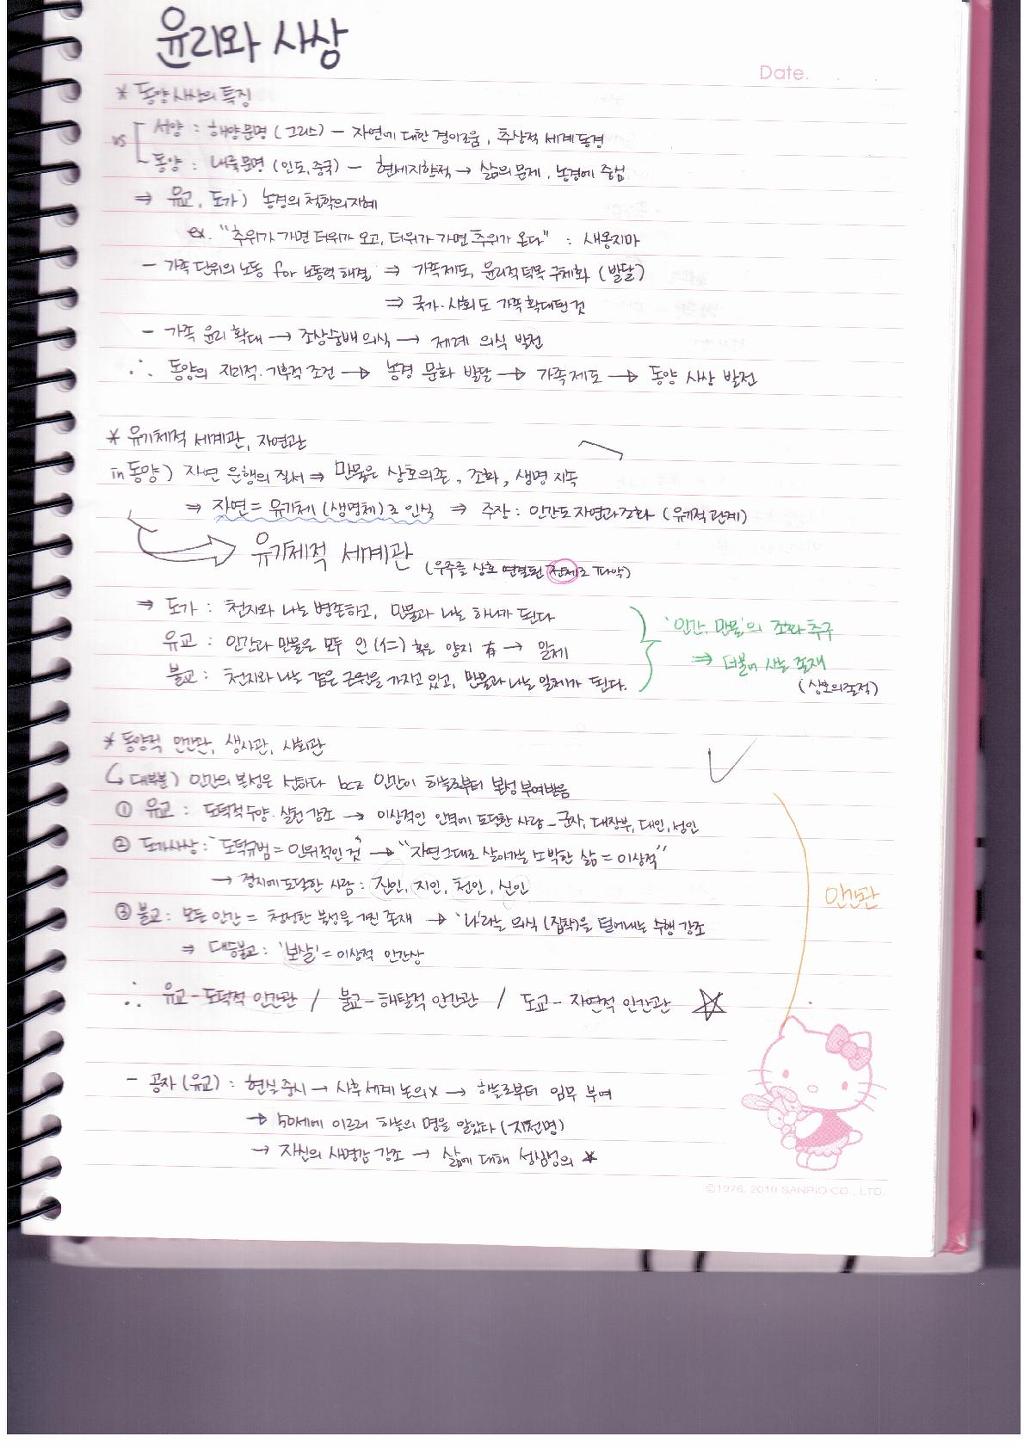 윤리와 사상
Date.
* 동양 사상의 특징
vs
서양 : 해양문명 (그리스) - 자연에 대한 경이로움, 추상적 세계 동경
동양 : 내륙문명 (인도, 중국) - 현세지향적 → 삶의 문제, 농경에 중심
⇒ 유교, 도가) 농경의 철학의 지혜
ex. "추위가 가면 더위가 오고, 더위가 가면 추위가 온다" : 새옹지마
- 가족 단위의 노동 for 노동력 해결 ⇒ 가족제도, 윤리적 덕목 구체화 (발달)
⇒ 국가·사회도 가족 확대된 것
- 가족 윤리 확대 → 조상숭배 의식 → 제례 의식 발전
∴ 동양의 지리적·기후적 조건 → 농경 문화 발달 → 가족제도 → 동양 사상 발전
* 유기체적 세계관, 자연관
in 동양) 자연 운행의 질서 ⇒ 만물은 상호의존, 조화, 생명 지속
⇒ 자연 = 유기체 (생명체)로 인식 ⇒ 주장 : 인간도 자연과 조화 (유기적 관계)
유기체적 세계관 (우주를 상호 연결된 전체로 파악)
⇒ 도가 : 천지와 나는 병존하고, 만물과 나는 하나가 된다
유교 : 인간과 만물은 모두 인(仁) 혹은 양지 有 → 일체
불교 : 천지와 나는 같은 근원을 가지고 있고, 만물과 나는 일체가 된다.
'인간, 만물'의 조화 추구
⇒ 더불어 사는 존재
(상호의존적)
* 동양적 인간관, 생사관, 사회관
대부분) 인간의 본성은 선하다 bcz 인간이 하늘로부터 본성 부여받음
① 유교 : 도덕적 수양·실천 강조 → 이상적인 인격에 도달한 사람 - 군자, 대장부, 대인, 성인
② 도가사상 : "도덕규범 = 인위적인 것" → "자연 그대로 살아가는 소박한 삶 = 이상적"
→ 경지에 도달한 사람 : 진인, 지인, 천인, 신인
③ 불교 : 모든 인간 = 청정한 본성을 가진 존재 → '나'라는 의식 (집착)을 덜어내는 수행 강조
⇒ 대승불교 : '보살' = 이상적 인간상
인간관
∴ 유교 - 도덕적 인간관 / 불교 - 해탈적 인간관 / 도교 - 자연적 인간관 ☆
- 공자 (유교) : 현실 중시 → 사후 세계 논의 x → 하늘로부터 임무 부여
→ 50세에 이르러 하늘의 명을 알았다 (지천명)
→ 자신의 사명감 강조 → 삶에 대해 성실성의 *
©1976, 2010 SANRIO CO., LTD.